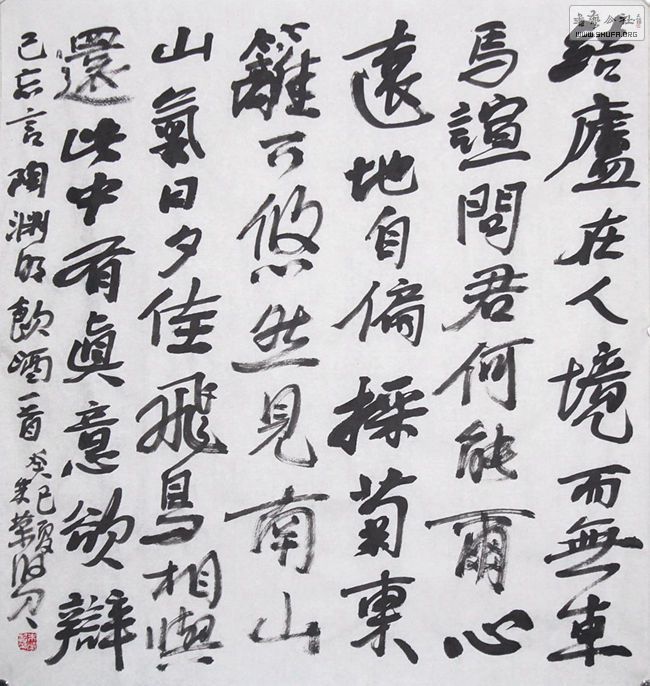 結廬在人境而無車
馬諠問君何能爾心
遠地自偏採菊東
籬下悠然見南山
山氣日夕佳飛鳥相與
還此中有眞意欲辯
已忘言陶淵明飲酒一首
癸巳夏朱
書法公社
WWW.SHUFA.ORG